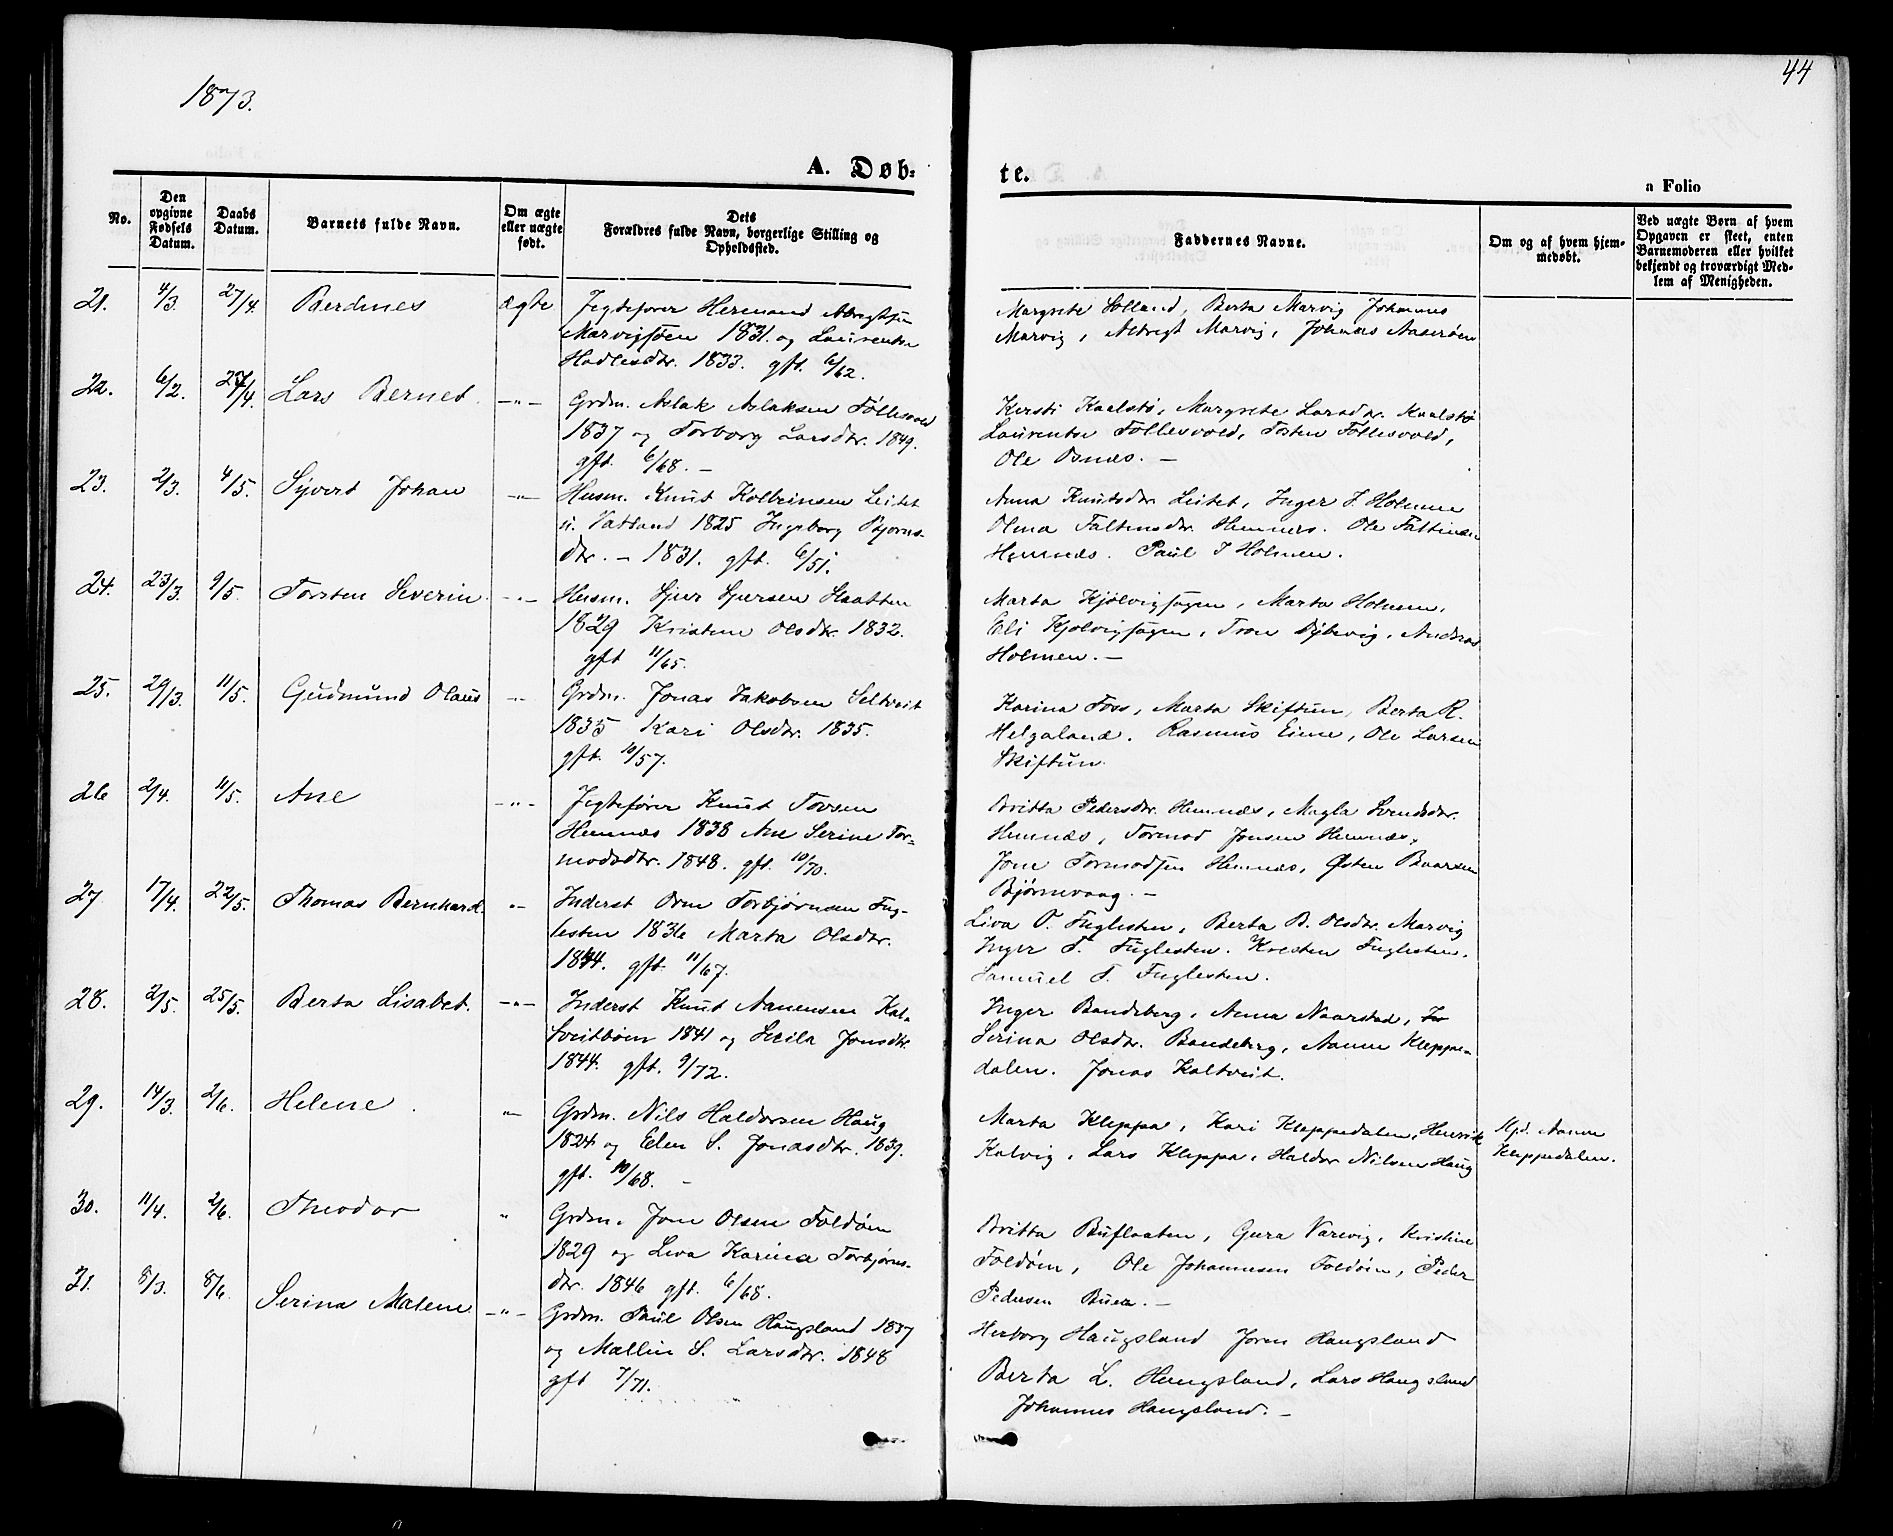 1873.
44
A. Døb-
te.
a Folio
No.
Den opgivne Fødsels Datum.
Daabs Datum.
Barnets fulde Navn.
Om ægte eller uægte født.
Dets Forældres fulde Navn, borgerlige Stilling og Opholdssted.
Faddernes Navne.
Om og af hvem hjemmedøbt.
Ved uægte Børn af hvem Opgaven er skeet, enten Barnemoderen eller hvilket bekjendt og troværdigt Medlem af Menigheden.
21. 4/3. 27/4. Berdines ægte Jegtefører Hermand Albregtsen
Marvigsøen 1831. og Laurentse
Hadlesdtr. 1833. gft. 6/62.
Margrete Solland, Berta Marvig Johannes
Marvig, Albregt Marvig, Johannes Aaserøen
22. 6/2. 27/4. Lars Bernet. -"- Grdm. Aslak Aslaksen Føllesvold
1837 og Torborg Larsdtr. 1849.
gft. 6/68. -
Kersti Kaalstø, Margrete Larsdtr. Kaalstø
Laurentse Føllesvold, Tosten Føllesvold,
Ole Osnæs. -
23. 2/3. 4/5. Syvert Johan -"- Husm. Knut Kolbeinsen Leitet
u. Vatland 1825 Ingeborg Bjørns-
dtr. - 1831. gft. 6/51.
Anna Knutsdtr. Leitet, Inger J. Holmen
Olena Faltinsdtr. Hemnes. Ole Faltinsen
Hemnæs. Paul J Holmen.
24. 23/3. 9/5. Torsten Severin. -"- Husm. Sjur Sjursen Skaatten
1829 Kristene Olsdtr. 1832.
gft 11/65.
Marta Kjølvigsagen, Marta Holmen,
Eli Kjølvigsagen, Tron Dybevig, Andreas
Holmen. -
25. 29/3. 11/5. Gudmund Olaus -"- Grdm. Jonas Jakobsen Seltveit
1835 Kari Olsdtr. 1835.
gft. 10/57.
Karina Foss, Marta Skiftun, Berta R.
Helgaland. Rasmus Eime, Ole Larsen
Skiftun.
26 2/4. 11/5. Ane -"- Jegtefører Knut Torsen
Hemnæs 1838 Ane Serine Tor-
modsdtr. 1848. gft. 10/70.
Britta Pedersdtr. Hemnæs, Magla Svendsdtr.
Hemnæs, Tormod Jonsen Hemnæs,
Jone Tormodsen Hemnæs, Østen Baarsen
Bjørnevaag. -
27 17/4. 22/5. Thomas Bernhard. "- Inderst Orm Torbjørnsen Fug-
lesten 1836 Marta Olsdtr.
1844. gft. 11/67.
Liva O. Fuglesten, Berta B. Olsdtr. Marvig
Inger T. Fuglesten. Kresten Fuglesten.
Samuel T. Fuglesten.
28. 2/5. 25/5. Berta Lisabet. -"- Inderst Knut Aanensen Kal-
tveitbøen 1841 og Sicila Jonsdtr.
1844. gft. 9/72.
Inger Bandeberg, Anna Naarstad,
Serina Olsdtr. Bandeberg, Aanen Kleppe-
dalen. Jonas Kaltveit.
29. 14/3. 2/6. Helene. "- Grdm. Nils Haldorsen Haug
1824 og Elen S. Jonasdtr. 1839.
gft. 10/68. -
Marta Kleppa, Kari Kleppedalen, Henrik
Kalvig, Lars Kleppa, Haldor Nilsen Haug
Hjd. Aanen
Kleppedalen.
30. 11/4. 2/6. Theodor " Grdm. Jone Olsen Foldøen
1829 og Liva Karina Torbjørns-
dtr. 1846 gft. 6/68.
Britta Buflaaten, Gura Varvig, Kristine
Foldøen, Ole Johannesen Foldøen, Peder
Pedersen Buen. -
31. 8/3. 8/6. Serina Malene -"- Grdm. Paul Olsen Haugsland 1837
og Mallin S. Larsdtr. 1848
gft 7/71.
Herborg Haugsland Joren Haugsland
Berta L. Haugsland, Lars Haugsland
Johannes Haugsland. -